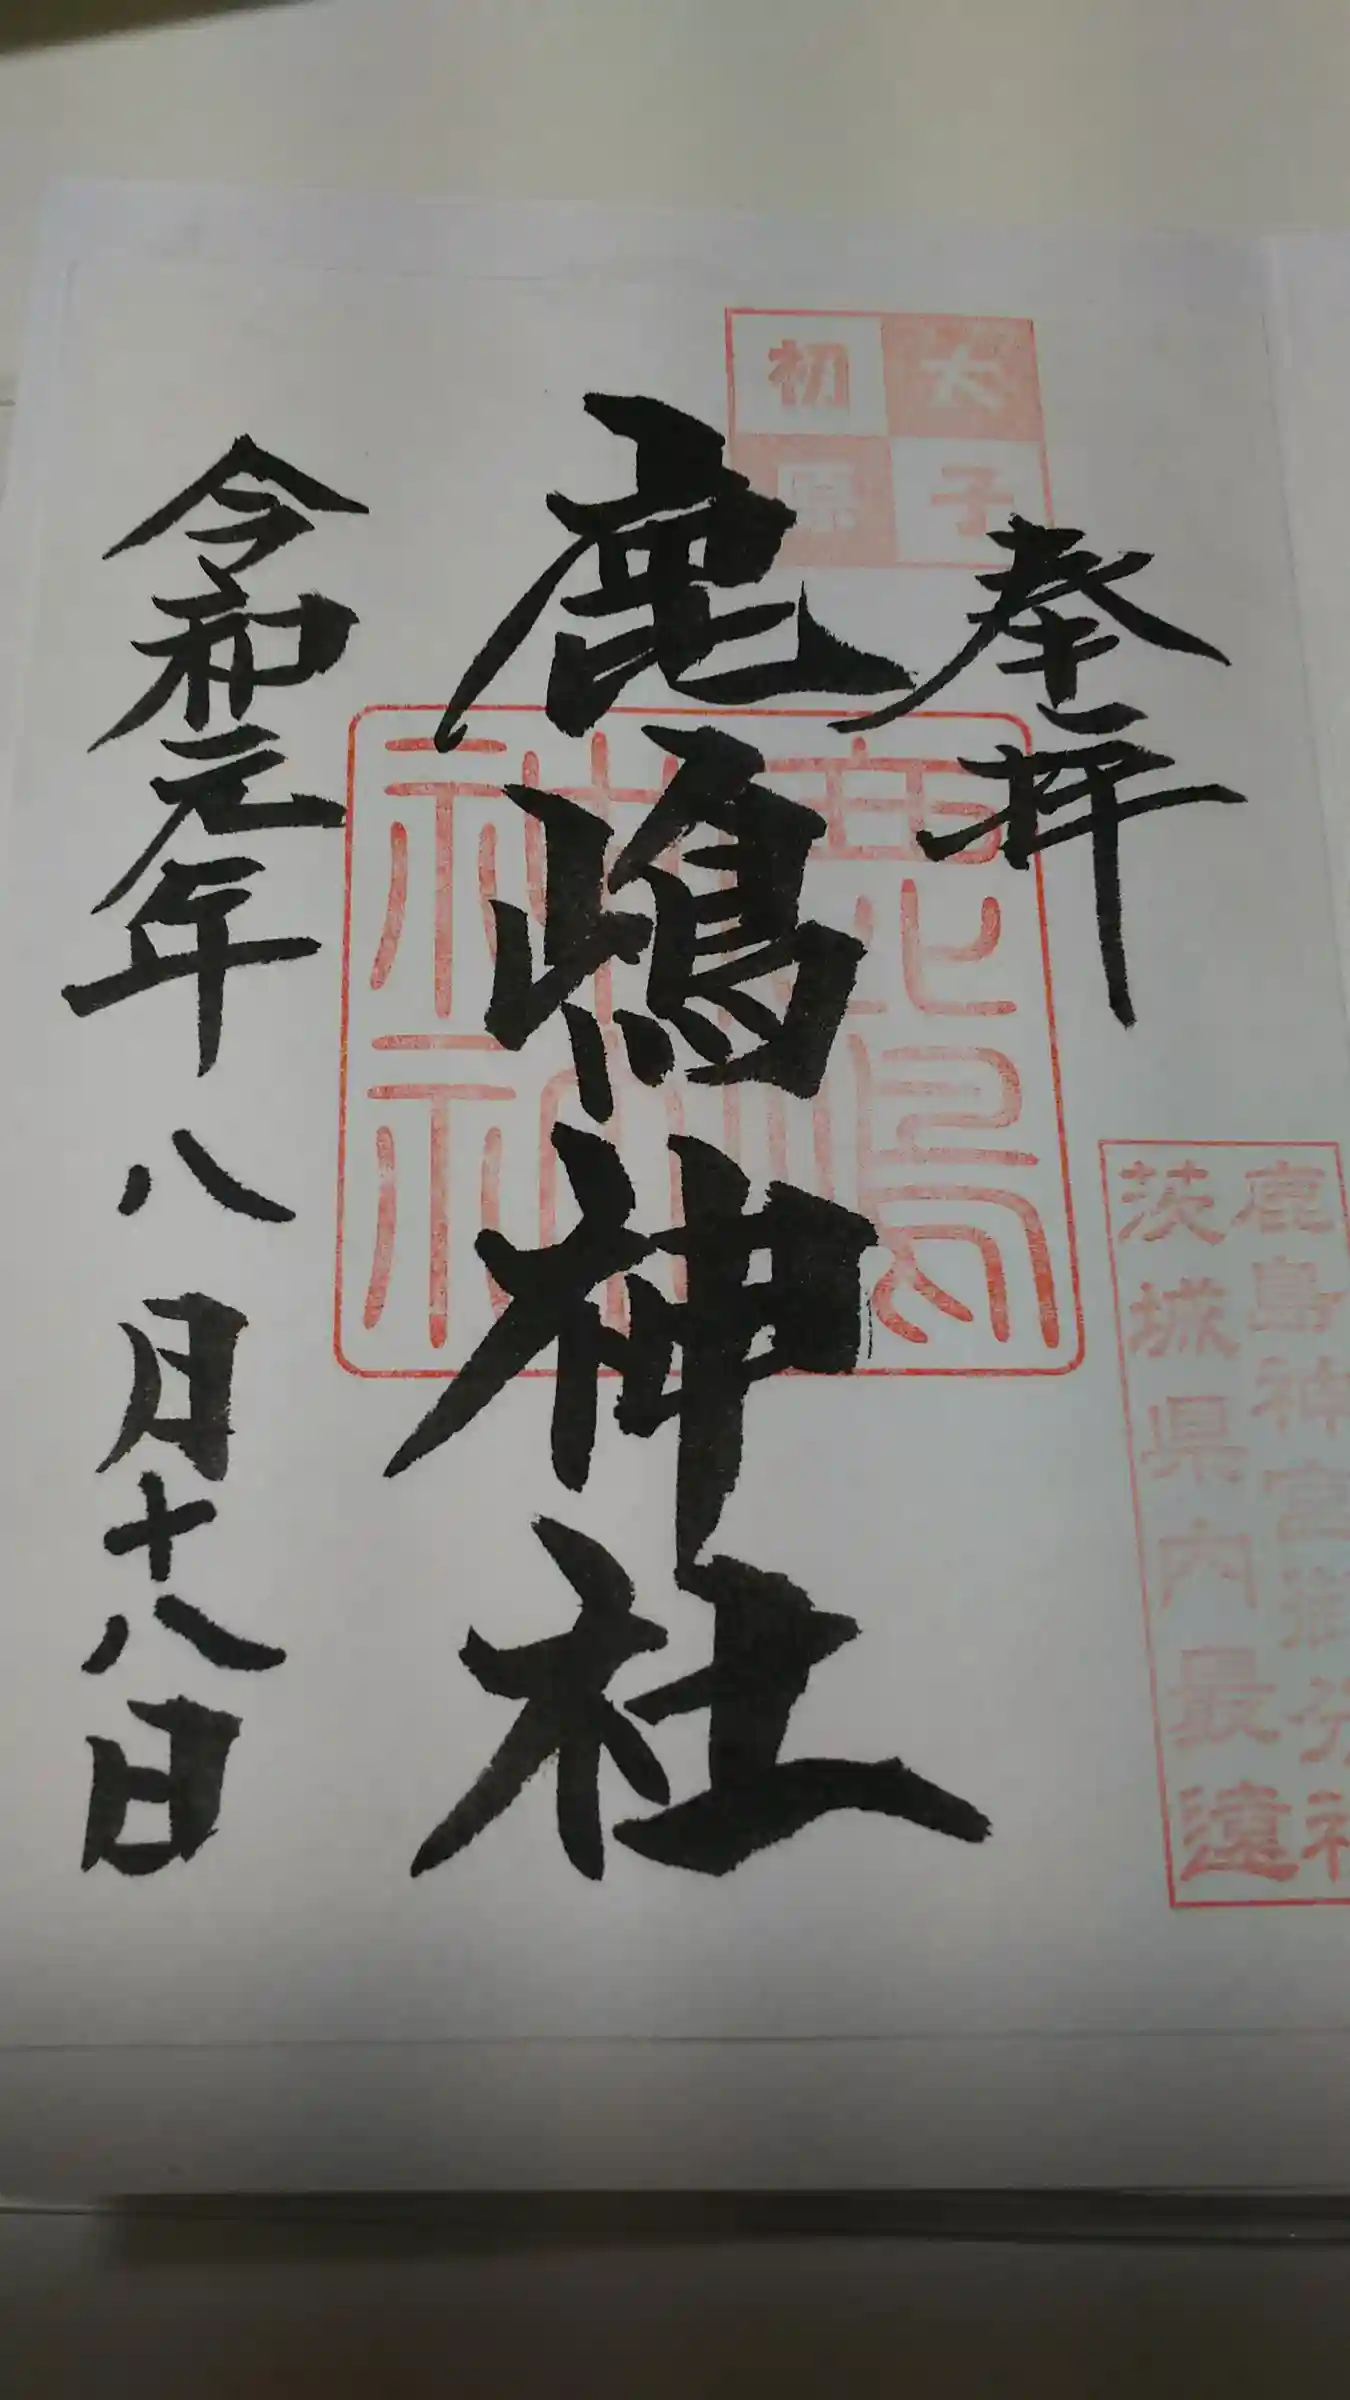 大子
初原
奉拝
鹿嶋神社
令和元年八月十八日
鹿島神宮御分社
茨城県内最遠